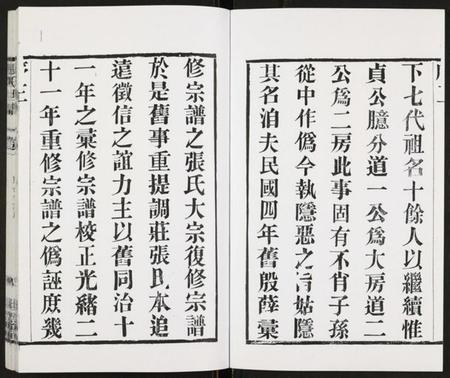 下七代祖名十餘人以繼續惟
貞公臆分道一公爲大房道二
公爲二房此事固有不肖子孫
從中作僞今執隱惡之旨姑隱
其名洎夫民國四年舊殷薛彙
修宗譜之張氏大宗復修宗譜
於是舊事重提調莊張氏本追
遠徵信之誼力主以舊同治十
一年之彙修宗譜校正光緒二
十一年重修宗譜之僞誣庶幾